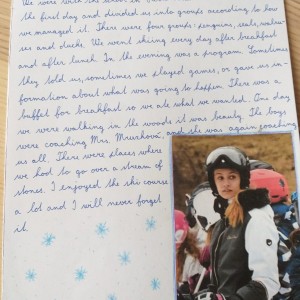 We were with the school in
the first day and divided us into groups according to how
we managed it. There were four groups: penguins, seals, walru-
ses and ducks. We went skiing every day after breakfast
and after lunch. In the evening was a program. Sometimes
they told us, sometimes we played games, or gave us in-
formation about what was going to happen. There was a
buffet for breakfast so we ate what we wanted. One day
we were walking in the woods it was beauty. The boys
were coaching Mrs. and she was again coaching
us all. There were places where
we had to go over a stream of
stones. I enjoyed the ski course
a lot and I will never forget
it.